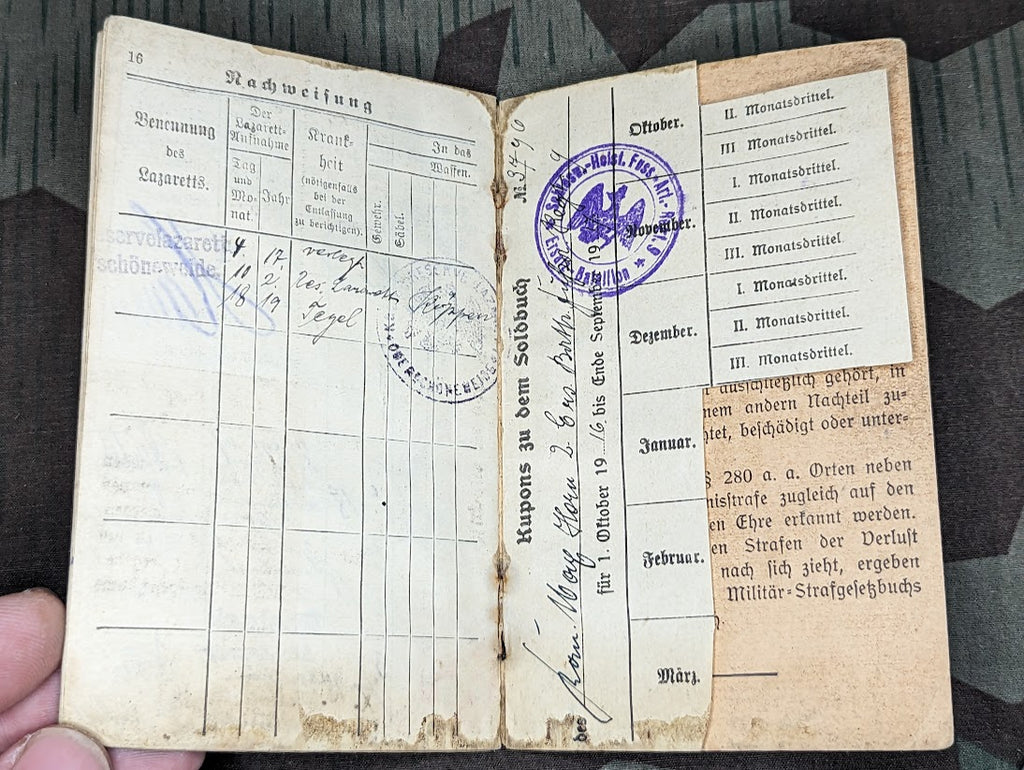 16
Nachweisung
Benennung
des
Lazaretts.
Der
Lazarett-
Aufnahme
Tag
und
Mo-
nat.
Jahr
Krank-
heit
(nötigenfalls
bei der
Entlassung
zu berichtigen).
In das
Waffen.
Gewehr.
Säbel.
servelazarett
schöneweide
4. 17. verlegt
10 2.
18 19 Tegel
RESERVE LAZA
OBERSCHÖNEWEIDE
№ 3496
Kupons zu dem Soldbuch
des Kan. Max Horn 2. Ers Batth.
für 1. Oktober 1916 bis Ende September 19
Schlesw.-Holst. Fuss-Art.-Rgt. 9
Erstes Bataillon
Oktober.
November.
Dezember.
Januar.
Februar.
März.
II. Monatsdrittel.
III Monatsdrittel.
I. Monatsdrittel.
II. Monatsdrittel.
III. Monatsdrittel.
I. Monatsdrittel.
II. Monatsdrittel.
III. Monatsdrittel.
ausschließlich gehört, in
nem andern Nachteil zu=
htet, beschädigt oder unter-
§ 280 a. a. Orten neben
nisstrafe zugleich auf den
en Ehre erkannt werden.
en Strafen der Verlust
nach sich zieht, ergeben
Militär=Strafgesetzbuchs